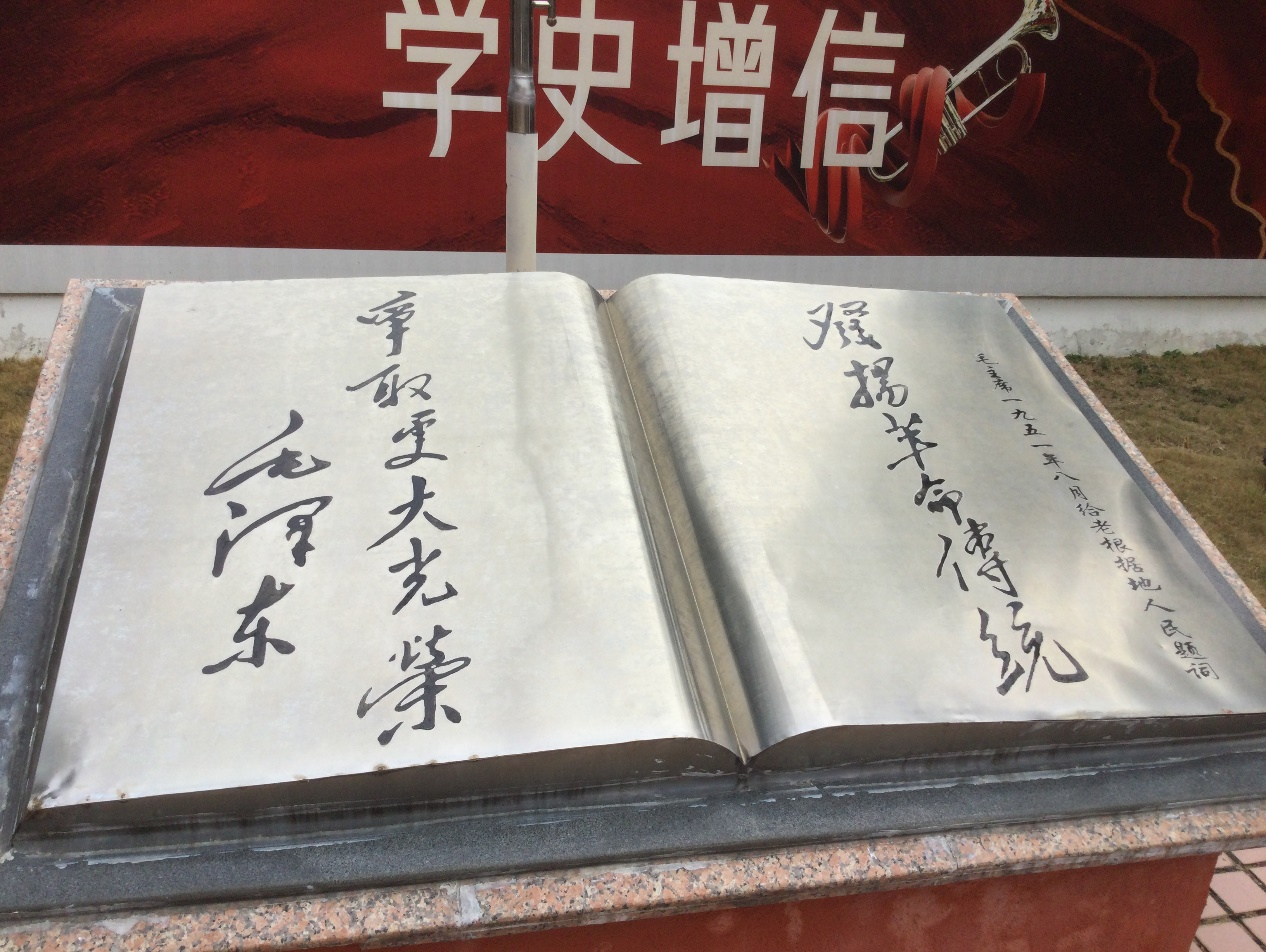 学史增信
毛主席一九五一年八月给老根据地人民题词
發揚革命傳統
爭取更大光榮
毛泽东